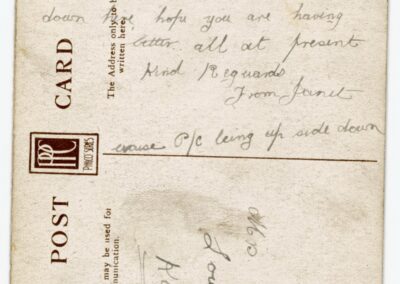 down here hope you are having
better all at present
Kind Reguards
From Janet
excuse P/C being up side down
POST CARD
The Address only to b
written here
PPC
PHILCO SERIES
may be used for
munication.